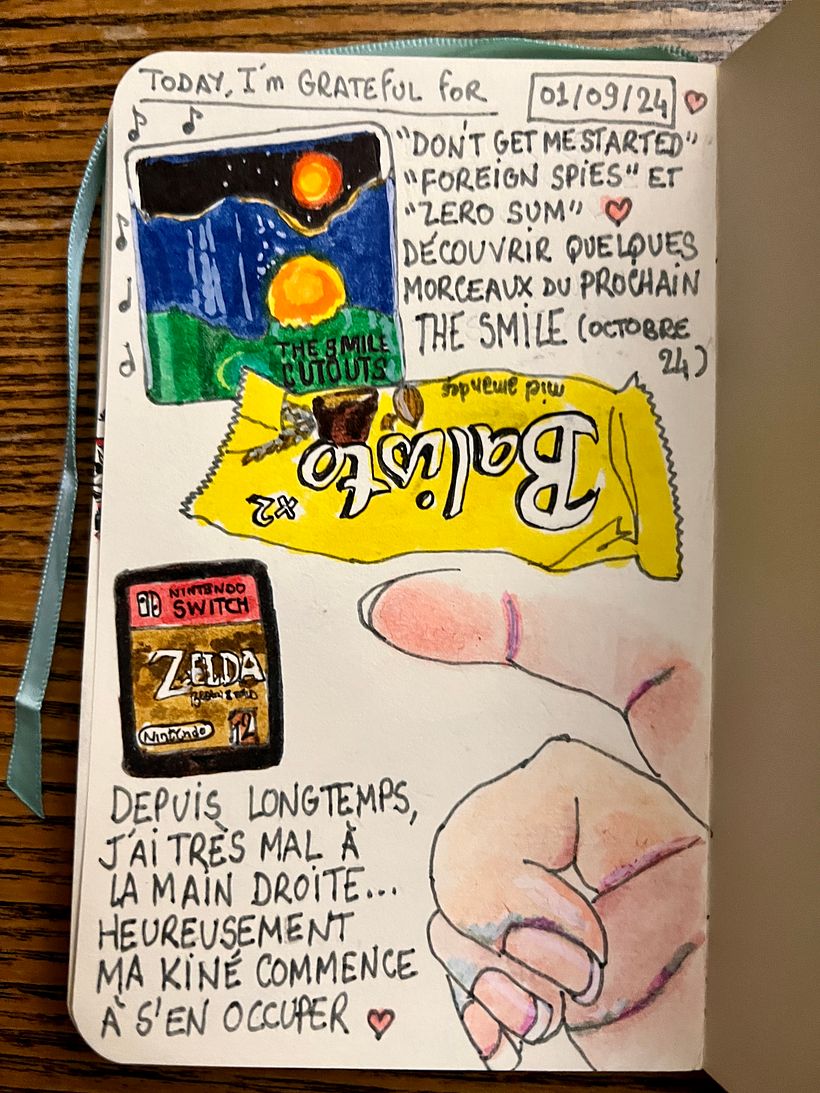 TODAY, I'm GRATEFUL FOR
01/09/24
"DON'T GET ME STARTED"
"FOREIGN SPIES" ET
"ZERO SUM"
DÉCOUVRIR QUELQUES
MORCEAUX DU PROCHAIN
THE SMILE (OCTOBRE
24)
THE SMILE
CUTOUTS
miel amande
Balisto
x2
NINTENDO
SWITCH
ZELDA
Nintendo
12
DEPUIS LONGTEMPS,
J'AI TRÈS MAL À
LA MAIN DROITE...
HEUREUSEMENT
MA KINÉ COMMENCE
À S'EN OCCUPER